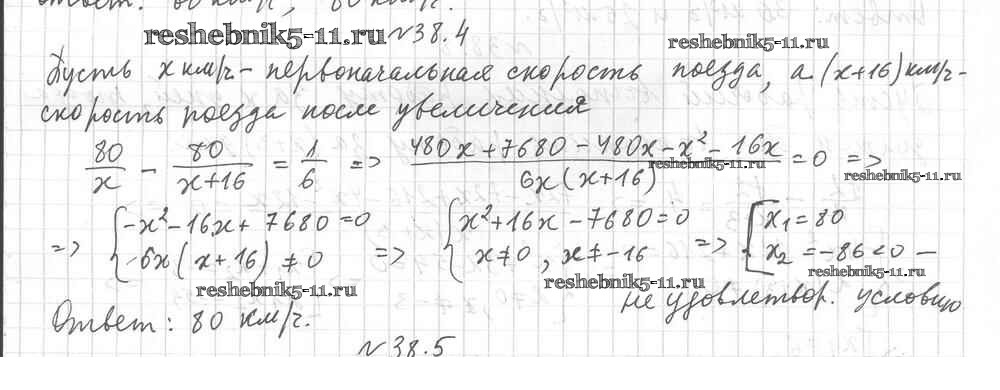 ответ: 60 км/ч, 80 км/ч.
reshebnik5-11.ru №38.4 reshebnik5-11.ru
Пусть x км/ч - первоначальная скорость поезда, а (x+16) км/ч -
скорость поезда после увеличения
80/x - 80/(x+16) = 1/6 => (480x + 7680 - 480x - x² - 16x)/(6x(x+16)) = 0 =>
reshebnik5-11.ru reshebnik5-11.ru
=> { -x² - 16x + 7680 = 0 => { x² + 16x - 7680 = 0 => [ x₁ = 80
-6x(x+16) ≠ 0 x ≠ 0, x ≠ -16 x₂ = -86 < 0 —
reshebnik5-11.ru reshebnik5-11.ru
не удовлетвор. условию
Ответ: 80 км/ч.
№38.5